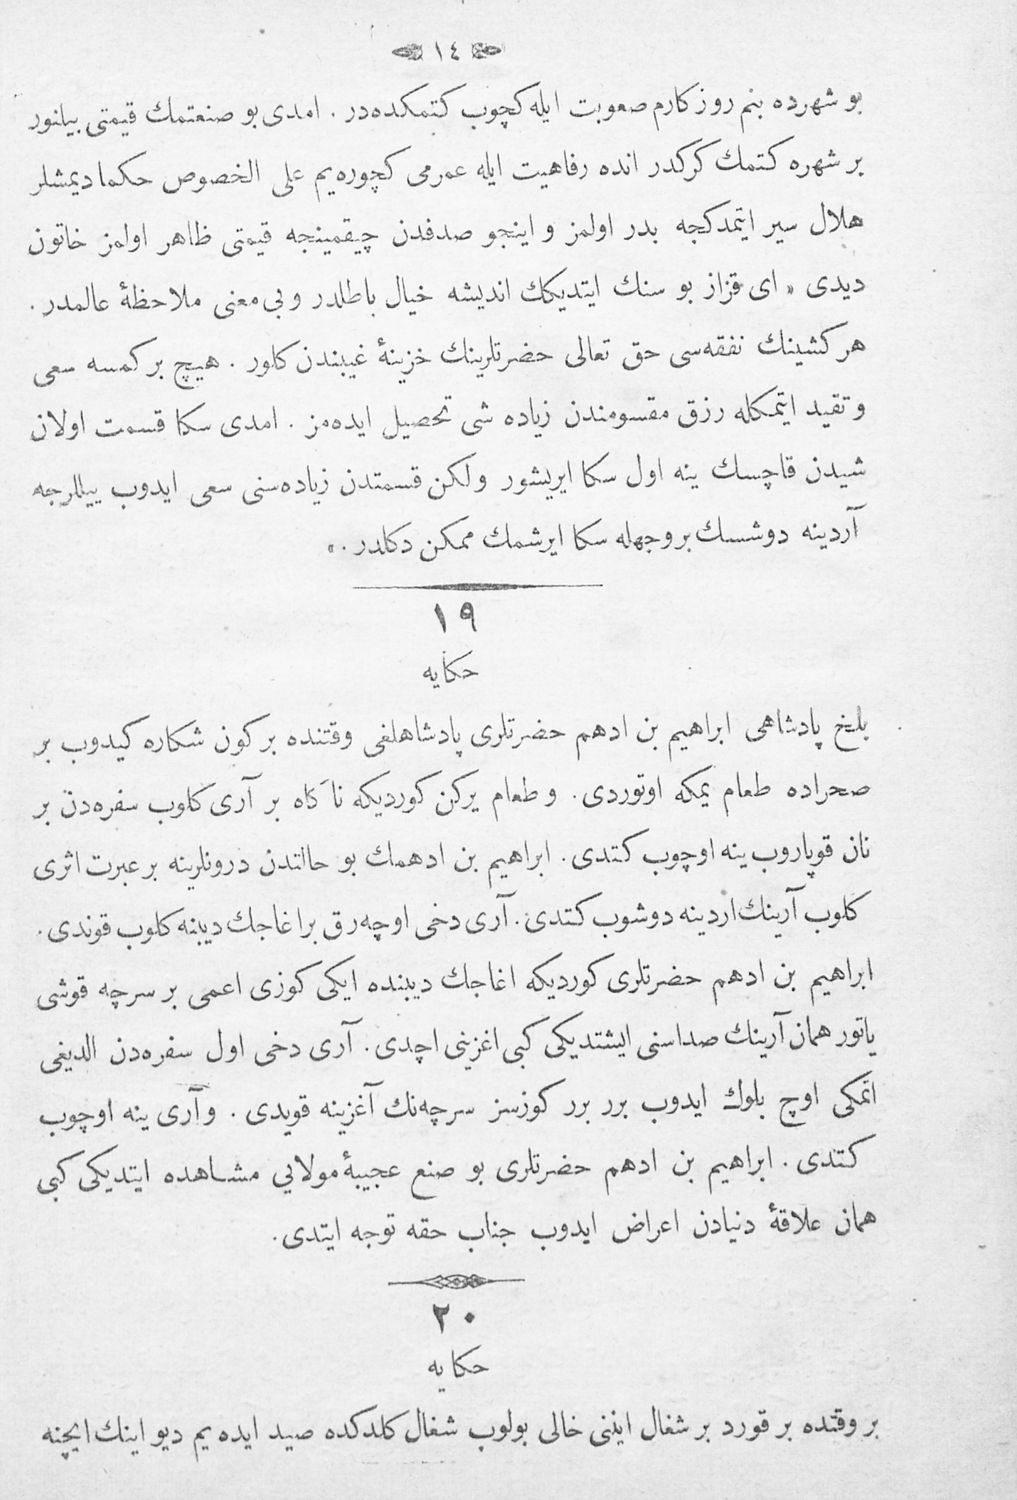 ١٤
بو شهرده بنم روزكارم صعوبت ايله كچوب كتمكده‌در . امدى بو صنعتمك قيمتى بيلنور
بر شهره كتمك كركدر انده رفاهيت ايله عمرمى كچوره‌يم على الخصوص حكما ديمشلر
هلال سير ايتمدكجه بدر اولمز و اينجو صدفدن چيقمينجه قيمتى ظاهر اولمز خاتون
ديدى « اى قزاز بو سنك ايتديكك انديشه خيال باطلدر و بى معنى ملاحظهٔ عالمدر .
هر كشينك نفقه‌سى حق تعالى حضرتلرينك خزينهٔ غيبندن كلور . هيچ بر كمسه سعى
و تقيد ايتمكله رزق مقسومندن زياده شى تحصيل ايده‌مز . امدى سكا قسمت اولان
شيدن قاچسك ينه اول سكا ايريشور ولكن قسمتدن زياده‌سنى سعى ايدوب ييللرجه
آردينه دوشسك بر وجهله سكا ايرشمك ممكن دكلدر . »
١٩
حكايه
بلخ پادشاهى ابراهيم بن ادهم حضرتلرى پادشاهلغى وقتنده بر كون شكاره كيدوب بر
صحراده طعام يمكه اوتوردى . و طعام يركن كورديكه ناكاه بر آرى كلوب سفره‌دن بر
نان قوپاروب ينه اوچوب كتدى . ابراهيم بن ادهمك بو حالتدن درونلرينه بر عبرت اثرى
كلوب آرينك اردينه دوشوب كتدى . آرى دخى اوچه‌رق بر اغاجك ديبنه كلوب قوندى .
ابراهيم بن ادهم حضرتلرى كورديكه اغاجك ديبنده ايكى كوزى اعمى بر سرچه قوشى
ياتور همان آرينك صداسنى ايشتديكى كبى اغزينى اچدى . آرى دخى اول سفره‌دن الديغى
اتمكى اوچ بلوك ايدوب برر برر كوزسز سرچه‌نك آغزينه قويدى . و آرى ينه اوچوب
كتدى . ابراهيم بن ادهم حضرتلرى بو صنع عجيبهٔ مولايى مشاهده ايتديكى كبى
همان علاقهٔ دنيادن اعراض ايدوب جناب حقه توجه ايتدى .
٢٠
حكايه
بر وقتده بر قورد بر شغال اينى خالى بولوب شغال كلدكده صيد ايده‌يم ديو اينك ايچنه